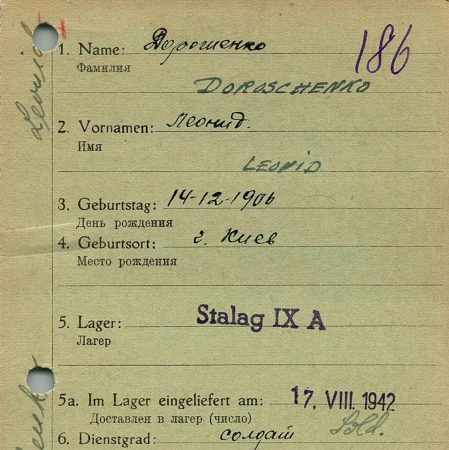 186
1. Name: Дорошенко
Фамилия
DOROSCHENKO
2. Vornamen: Леонид.
Имя
LEONID
3. Geburtstag: 14-12-1906
День рождения
4. Geburtsort: г. Киев
Место рождения
5. Lager: Stalag IX A
Лагерь
5a. Im Lager eingeliefert am: 17. VIII. 1942
Доставлен в лагерь (число)
6. Dienstgrad: солдат Sold.
Leonid